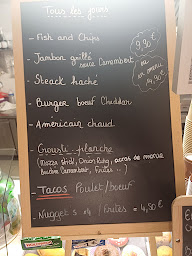 Tous les jours
- Fish and Chips
- Jambon grillé
sauce Camembert
- Steack haché
- Burger boeuf Cheddar
- Américain chaud
- Crousti-planche
(Mozza stick, Onion Rings, acras de morue
Camembert, Frites, ..)
- Tacos Poulet/boeuf
- Nugget's x4 / Frites = 4,50 €
9,90 €
ou
en menu